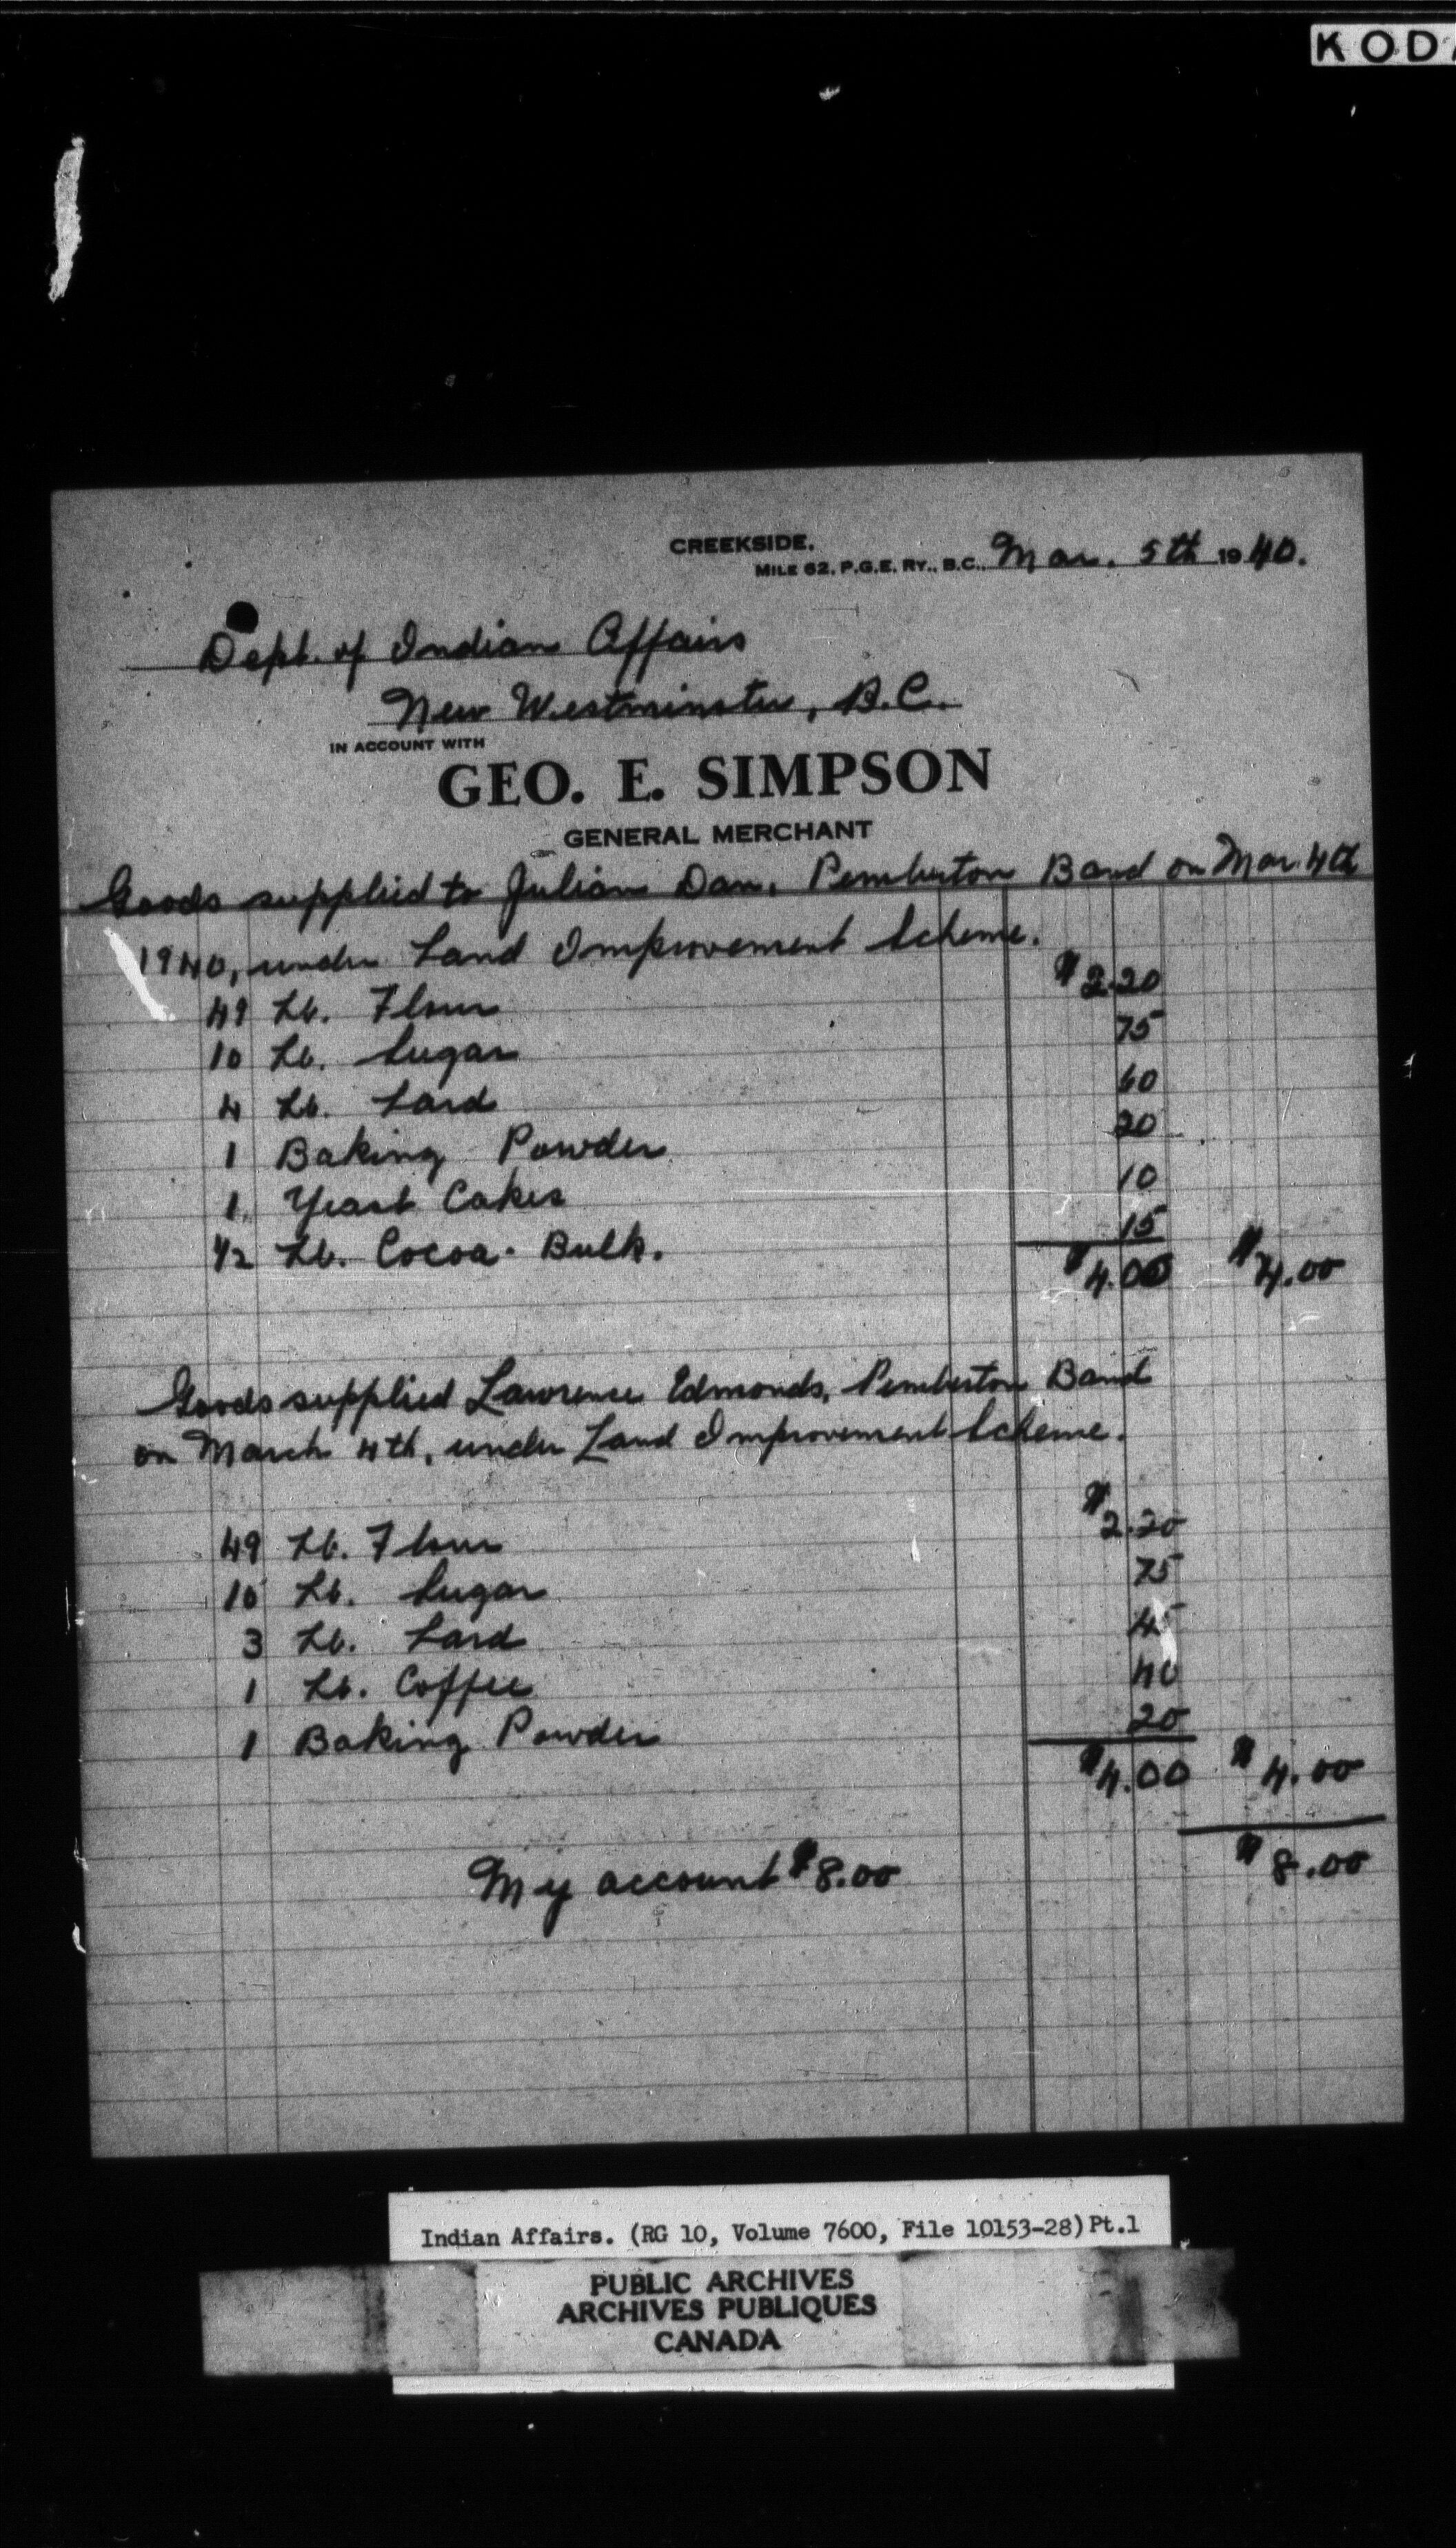 KODA
CREEKSIDE.
MILE 62, P.G.E. RY., B.C., Mar. 5th 1940.
Dept. of Indian Affairs
New Westminster, B.C.
IN ACCOUNT WITH
GEO. E. SIMPSON
GENERAL MERCHANT
Goods supplied to Julian Dan, Pemberton Band on Mar. 4th
1940, under Land Improvement Scheme.
49 Lb. Flour $2.20
10 Lb. Sugar 75
4 Lb. Lard 60
1 Baking Powder 20
1 Yeast Cakes 10
1/2 Lb. Cocoa - Bulk. 15
$4.00 $4.00
Goods supplied Lawrence Edmonds, Pemberton Band
on March 4th, under Land Improvement Scheme.
49 Lb. Flour $2.20
10 Lb. Sugar 75
3 Lb. Lard 45
1 Lb. Coffee 40
1 Baking Powder 20
$4.00 $4.00
My account $8.00 $8.00
Indian Affairs. (RG 10, Volume 7600, File 10153-28) Pt.1
PUBLIC ARCHIVES
ARCHIVES PUBLIQUES
CANADA